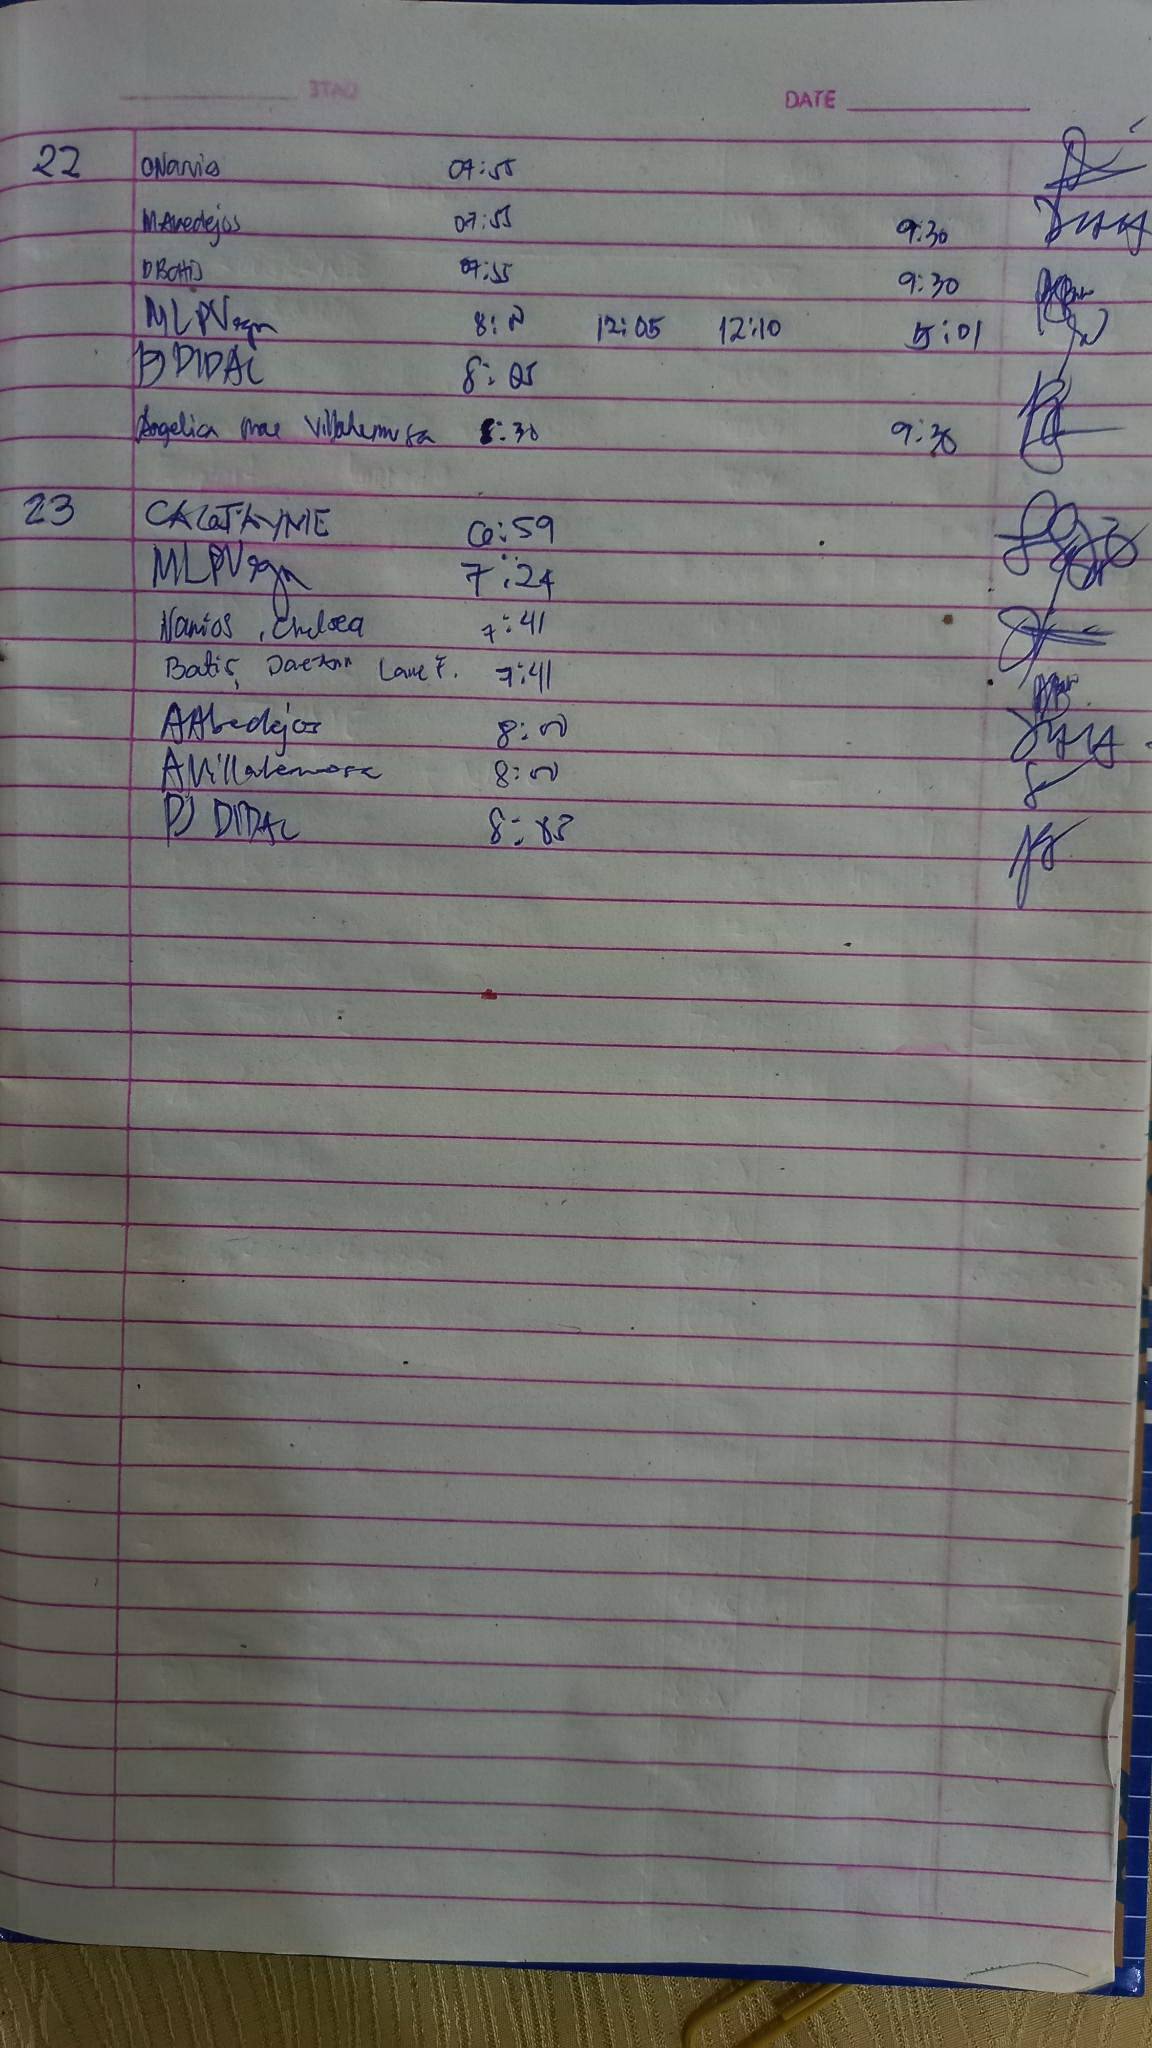 DATE
22 CNavios 07:55
MAbedejos 07:55 9:30
DBatis 07:55 9:30
MLPVegn 8:00 12:05 12:10 5:01
PJ DIDAL 8:05
Angelica Mae Villahermosa 8:30 9:30
23 6:59
MLPVegn 7:24
Navios, Chelsea 7:41
Batis, Lane F. 7:41
AAbedejos 8:00
AVillahermosa 8:00
PJ DIDAL 8:03